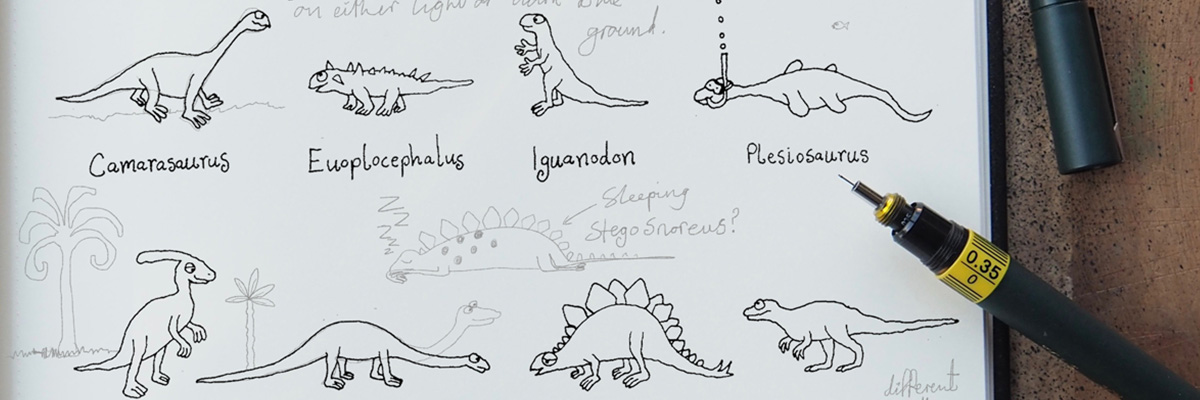 on either light or dark blue
ground.
Camarasaurus
Euoplocephalus
Iguanodon
Plesiosaurus
Sleeping
StegoSnoreus?
Z
Z
Z
Z
0.35
0
different